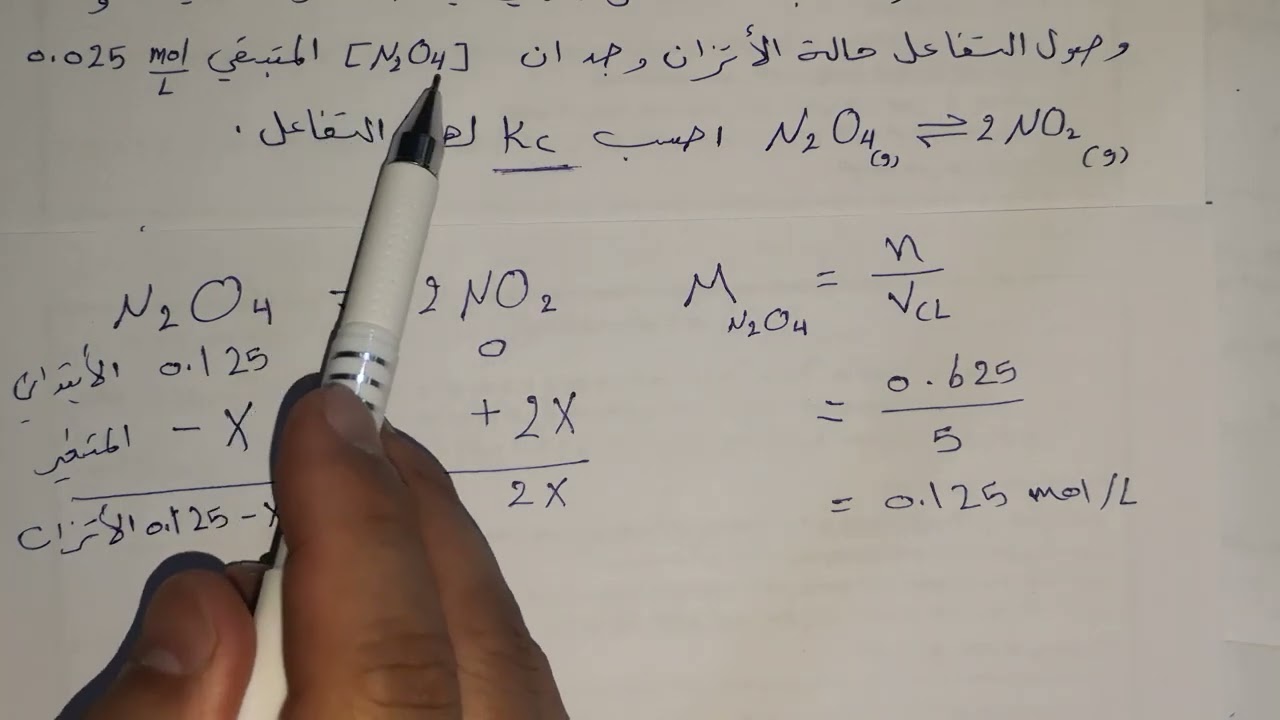 وصول التفاعل حالة الأتزان وجد ان [N2O4] المتبقي 0.025 mol/L
N2O4(g) ⇌ 2NO2(g) احسب Kc التفاعل .
N2O4 2NO2
الأبتدائي 0.125 0
المتغير - X + 2X
الأتزان 0.125 - X 2X
M N2O4 = n / VCL
= 0.625 / 5
= 0.125 mol/L